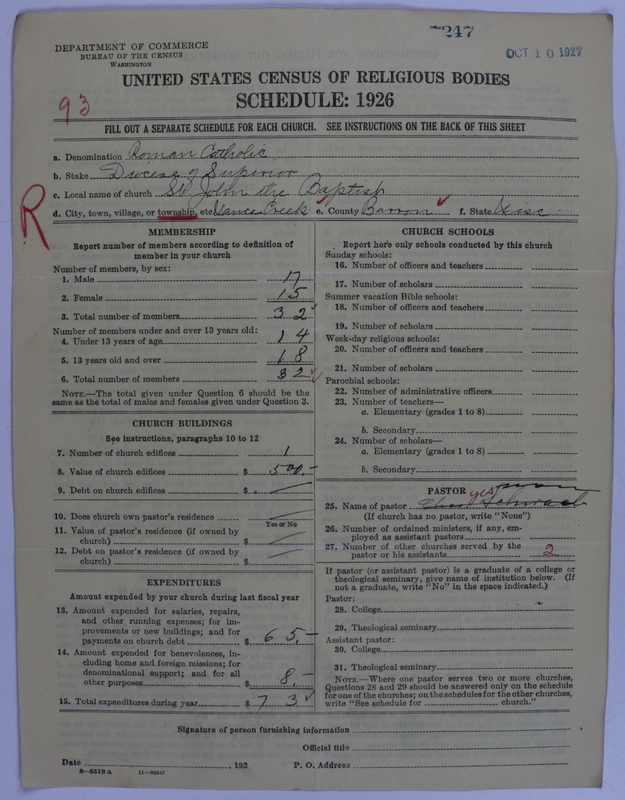 7247
DEPARTMENT OF COMMERCE
BUREAU OF THE CENSUS
WASHINGTON
OCT 10 1927
UNITED STATES CENSUS OF RELIGIOUS BODIES
SCHEDULE: 1926
93
FILL OUT A SEPARATE SCHEDULE FOR EACH CHURCH. SEE INSTRUCTIONS ON THE BACK OF THIS SHEET
a. Denomination Roman Catholic
b. Stake Diocese of Superior
c. Local name of church St John the Baptist
d. City, town, village, or township, etc. Vance Creek e. County Barron f. State Wisc
R
MEMBERSHIP
Report number of members according to definition of
member in your church
Number of members, by sex:
1. Male 17
2. Female 15
3. Total number of members 32
Number of members under and over 13 years old:
4. Under 13 years of age 14
5. 13 years old and over 18
6. Total number of members 32
NOTE.—The total given under Question 6 should be the
same as the total of males and females given under Question 3.
CHURCH BUILDINGS
See instructions, paragraphs 10 to 12
7. Number of church edifices 1
8. Value of church edifices $ 500.-
9. Debt on church edifices $
10. Does church own pastor's residence
Yes or No
11. Value of pastor's residence (if owned by
church) $
12. Debt on pastor's residence (if owned by
church) $
EXPENDITURES
Amount expended by your church during last fiscal year
13. Amount expended for salaries, repairs,
and other running expenses; for im-
provements or new buildings; and for
payments on church debt $ 65.-
14. Amount expended for benevolences, in-
cluding home and foreign missions; for
denominational support; and for all
other purposes $ 8.-
15. Total expenditures during year $ 73
CHURCH SCHOOLS
Report here only schools conducted by this church
Sunday schools:
16. Number of officers and teachers
17. Number of scholars
Summer vacation Bible schools:
18. Number of officers and teachers
19. Number of scholars
Week-day religious schools:
20. Number of officers and teachers
21. Number of scholars
Parochial schools:
22. Number of administrative officers
23. Number of teachers—
a. Elementary (grades 1 to 8)
b. Secondary
24. Number of scholars—
a. Elementary (grades 1 to 8)
b. Secondary
PASTOR yes
25. Name of pastor Chas Schwab
(If church has no pastor, write "None")
26. Number of ordained ministers, if any, em-
ployed as assistant pastors
27. Number of other churches served by the
pastor or his assistants 2
If pastor (or assistant pastor) is a graduate of a college or
theological seminary, give name of institution below. (If
not a graduate, write "No" in the space indicated.)
Pastor:
28. College
29. Theological seminary
Assistant pastor:
30. College
31. Theological seminary
NOTE.—Where one pastor serves two or more churches,
Questions 28 and 29 should be answered only on the schedule
for one of the churches; on the schedules for the other churches,
write "See schedule for church."
Signature of person furnishing information
Official title
Date , 192 P. O. Address
8—5518 a